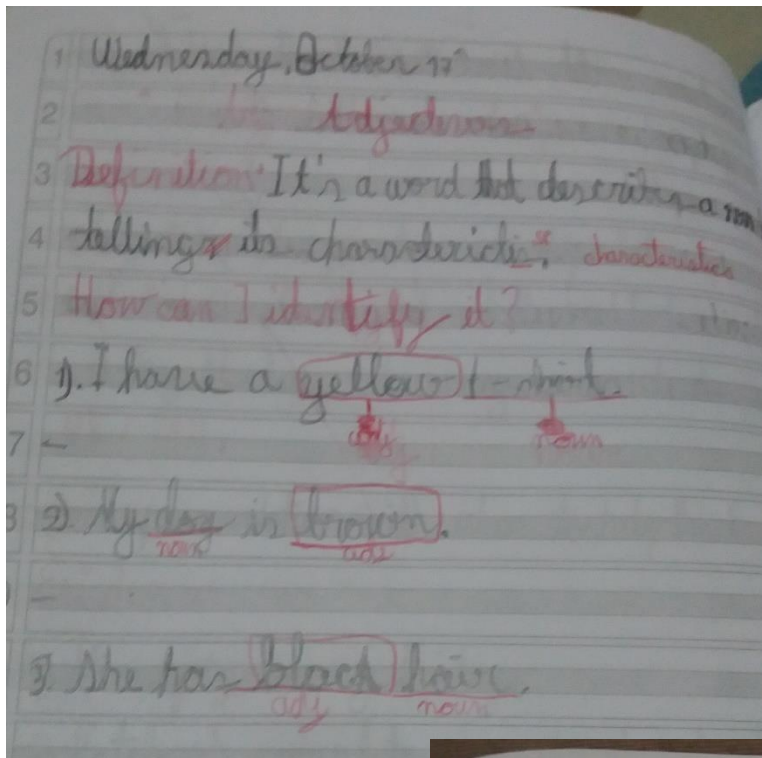 1 Wednesday, October 17
2 Adjectives
3 Definition: It's a word that describes a noun
4 telling its characteristics. characteristics
5 How can I identify it?
6 1). I have a yellow t-shirt.
adj noun
7
8 2) My dog is brown.
noun adj
3. She has black hair.
adj noun